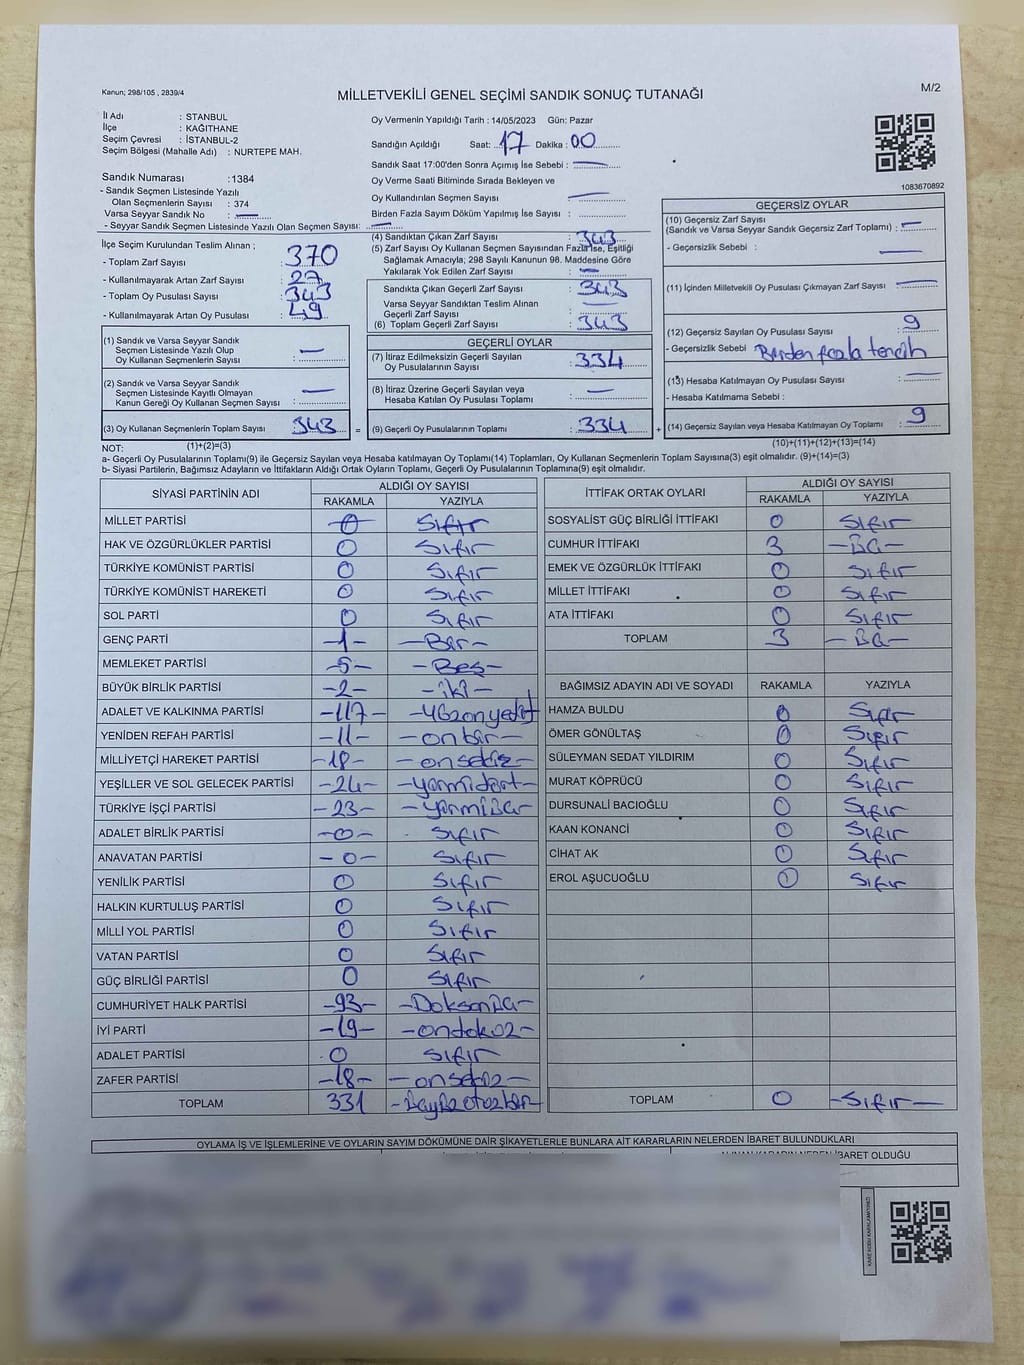 Kanun; 298/105 , 2839/4
MİLLETVEKİLİ GENEL SEÇİMİ SANDIK SONUÇ TUTANAĞI
M/2
İl Adı : STANBUL
İlçe : KAĞITHANE
Seçim Çevresi : İSTANBUL-2
Seçim Bölgesi (Mahalle Adı) : NURTEPE MAH.
Oy Vermenin Yapıldığı Tarih : 14/05/2023 Gün: Pazar
Sandığın Açıldığı Saat: 17 Dakika : 00
Sandık Saat 17:00'den Sonra Açımış İse Sebebi : —
Oy Verme Saati Bitiminde Sırada Bekleyen ve
Oy Kullandırılan Seçmen Sayısı : —
Birden Fazla Sayım Döküm Yapılmış İse Sayısı :
1083670892
Sandık Numarası :1384
- Sandık Seçmen Listesinde Yazılı
Olan Seçmenlerin Sayısı : 374
Varsa Seyyar Sandık No : —
- Seyyar Sandık Seçmen Listesinde Yazılı Olan Seçmen Sayısı: —
İlçe Seçim Kurulundan Teslim Alınan ;
- Toplam Zarf Sayısı : 370
- Kullanılmayarak Artan Zarf Sayısı : 27
- Toplam Oy Pusulası Sayısı : 343
- Kullanılmayarak Artan Oy Pusulası : 49
(1) Sandık ve Varsa Seyyar Sandık
Seçmen Listesinde Yazılı Olup
Oy Kullanan Seçmenlerin Sayısı : —
(2) Sandık ve Varsa Seyyar Sandık
Seçmen Listesinde Kayıtlı Olmayan
Kanun Gereği Oy Kullanan Seçmen Sayısı : —
(3) Oy Kullanan Seçmenlerin Toplam Sayısı : 343 =
(1)+(2)=(3)
(4) Sandıktan Çıkan Zarf Sayısı : 343
(5) Zarf Sayısı Oy Kullanan Seçmen Sayısından Fazla İse, Eşitliği
Sağlamak Amacıyla; 298 Sayılı Kanunun 98. Maddesine Göre
Yakılarak Yok Edilen Zarf Sayısı : —
Sandıkta Çıkan Geçerli Zarf Sayısı : 343
Varsa Seyyar Sandıktan Teslim Alınan
Geçerli Zarf Sayısı : —
(6) Toplam Geçerli Zarf Sayısı : 343
GEÇERLİ OYLAR
(7) İtiraz Edilmeksizin Geçerli Sayılan
Oy Pusulalarının Sayısı : 334
(8) İtiraz Üzerine Geçerli Sayılan veya
Hesaba Katılan Oy Pusulası Toplamı : —
(9) Geçerli Oy Pusulalarının Toplamı : 334 +
GEÇERSİZ OYLAR
(10) Geçersiz Zarf Sayısı
(Sandık ve Varsa Seyyar Sandık Geçersiz Zarf Toplamı) : —
- Geçersizlik Sebebi : —
(11) İçinden Milletvekili Oy Pusulası Çıkmayan Zarf Sayısı : —
(12) Geçersiz Sayılan Oy Pusulası Sayısı : 9
- Geçersizlik Sebebi : Birden fazla tercih
(13) Hesaba Katılmayan Oy Pusulası Sayısı : —
- Hesaba Katılmama Sebebi :
(14) Geçersiz Sayılan veya Hesaba Katılmayan Oy Toplamı : 9
(10)+(11)+(12)+(13)=(14)
NOT:
a- Geçerli Oy Pusulalarının Toplamı(9) ile Geçersiz Sayılan veya Hesaba katılmayan Oy Toplamı(14) Toplamları, Oy Kullanan Seçmenlerin Toplam Sayısına(3) eşit olmalıdır. (9)+(14)=(3)
b- Siyasi Partilerin, Bağımsız Adayların ve İttifakların Aldığı Ortak Oyların Toplamı, Geçerli Oy Pusulalarının Toplamına(9) eşit olmalıdır.
SİYASİ PARTİNİN ADI
ALDIĞI OY SAYISI
RAKAMLA YAZIYLA
MİLLET PARTİSİ 0 Sıfır
HAK VE ÖZGÜRLÜKLER PARTİSİ 0 Sıfır
TÜRKİYE KOMÜNİST PARTİSİ 0 Sıfır
TÜRKİYE KOMÜNİST HAREKETİ 0 Sıfır
SOL PARTİ 0 Sıfır
GENÇ PARTİ -1- -Bir-
MEMLEKET PARTİSİ -5- -Beş-
BÜYÜK BİRLİK PARTİSİ -2- -iki-
ADALET VE KALKINMA PARTİSİ -117- -yüzonyedi
YENİDEN REFAH PARTİSİ -11- -onbir-
MİLLİYETÇİ HAREKET PARTİSİ -18- -onsekiz-
YEŞİLLER VE SOL GELECEK PARTİSİ -24- -yirmidört-
TÜRKİYE İŞÇİ PARTİSİ -23- -yirmiüç-
ADALET BİRLİK PARTİSİ -0- Sıfır
ANAVATAN PARTİSİ -0- Sıfır
YENİLİK PARTİSİ 0 Sıfır
HALKIN KURTULUŞ PARTİSİ 0 Sıfır
MİLLİ YOL PARTİSİ 0 Sıfır
VATAN PARTİSİ 0 Sıfır
GÜÇ BİRLİĞİ PARTİSİ 0 Sıfır
CUMHURİYET HALK PARTİSİ -93- -Doksanüç-
İYİ PARTİ -19- -ondokuz-
ADALET PARTİSİ 0 Sıfır
ZAFER PARTİSİ -18- -onsekiz-
TOPLAM 331 -üçyüzotuzbir-
İTTİFAK ORTAK OYLARI
ALDIĞI OY SAYISI
RAKAMLA YAZIYLA
SOSYALİST GÜÇ BİRLİĞİ İTTİFAKI 0 Sıfır
CUMHUR İTTİFAKI 3 -Üç-
EMEK VE ÖZGÜRLÜK İTTİFAKI 0 Sıfır
MİLLET İTTİFAKI 0 Sıfır
ATA İTTİFAKI 0 Sıfır
TOPLAM 3 -Üç-
BAĞIMSIZ ADAYIN ADI VE SOYADI RAKAMLA YAZIYLA
HAMZA BULDU 0 Sıfır
ÖMER GÖNÜLTAŞ 0 Sıfır
SÜLEYMAN SEDAT YILDIRIM 0 Sıfır
MURAT KÖPRÜCÜ 0 Sıfır
DURSUNALİ BACIOĞLU 0 Sıfır
KAAN KONANCİ 0 Sıfır
CİHAT AK 0 Sıfır
EROL AŞUCUOĞLU 0 Sıfır
TOPLAM 0 -Sıfır-
OYLAMA İŞ VE İŞLEMLERİNE VE OYLARIN SAYIM DÖKÜMÜNE DAİR ŞİKAYETLERLE BUNLARA AİT KARARLARIN NELERDEN İBARET BULUNDUKLARI
İBARET OLDUĞU